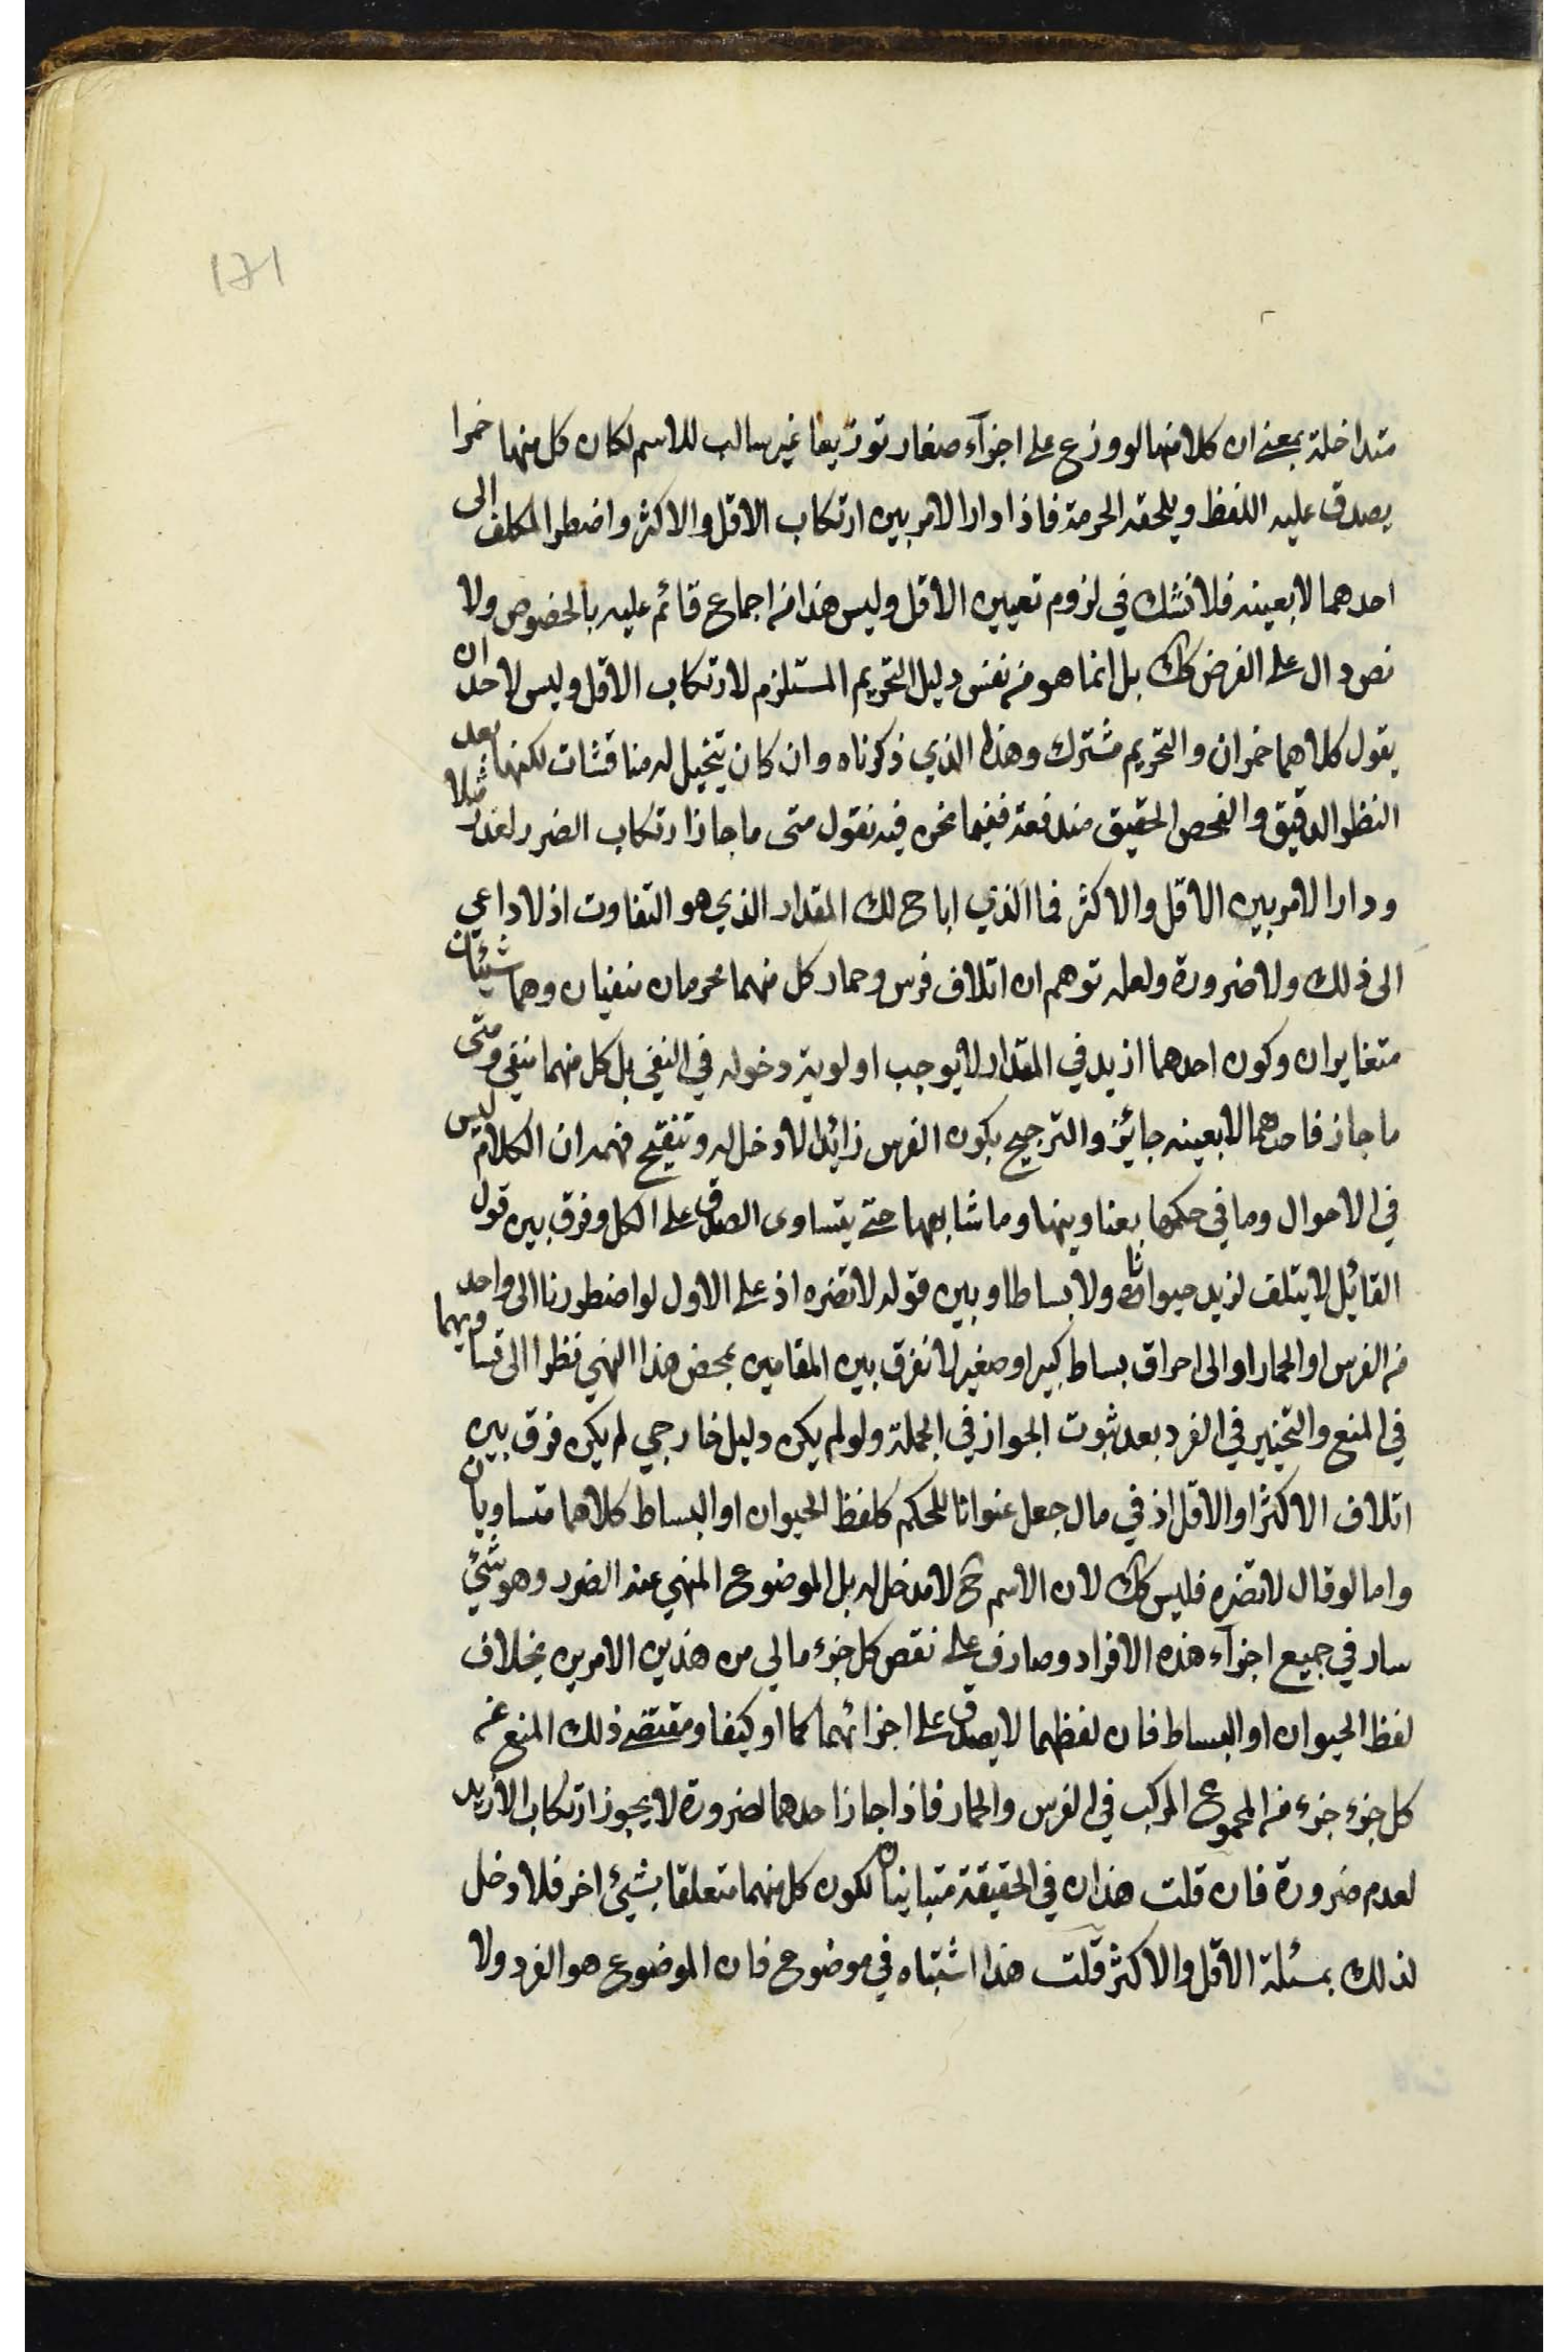 ١٢١
متداخلة بمعنى ان كلا منها لو وزع على اجزآء صغار توزيعا غير سالب للاسم لكان كل منها خمرا
يصدق عليه اللفظ ويلحقه الحرمة فاذا دار الامر بين ارتكاب الاقل والاكثر واضطر المكلف الى
احدهما لا بعينه فلا نشك في لزوم تعيين الاقل وليس هذا من اجماع قائم عليه بالخصوص ولا
نص دال على الفرض كك بل انما هو من نفس دليل التحريم المستلزم لارتكاب الاقل وليس لاحد ان
يقول كلاهما خمران والتحريم مشترك وهذا الذي ذكرناه وان كان يتخيل له مناقشات لكنها بعد
النظر الدقيق والفحص الحقيق مندفعة ففيما نحن فيه نقول متى ما جاز ارتكاب الضرر لعذر مثلا
ودار الامر بين الاقل والاكثر فما الذي اباح لك المقدار الذي هو التفاوت اذ لا داعي
الى ذلك ولا ضرورة ولعله توهم ان اتلاف فرس وحمار كل منهما محرمان منفيان وهما شيئان
متغايران وكون احدهما ازيد في المقدار لا يوجب اولوية دخوله في النفي بل كل منهما منفي ومتى
ما جاز فاحدهما لا بعينه جائز والترجيح بكون الفرس زائدا لا دخل له وتنقيح فهمه ان الكلام ليس
في الاحوال وما في حكمها بعناوينها وما شابهها حتى يتساوى الصدق على الكل وفرق بين قول
القائل لا يتلف لزيد حيوانا ولا بساطا وبين قوله لا تضره اذ على الاول لو اضطررنا الى واحد
من الفرس او الحمار او الى احراق بساط كبير او صغير لا نفرق بين المقامين بمحض هذا النهي نظرا الى تساويهما
في المنع والتخيير في الفرد بعد ثبوت الجواز في الجملة ولو لم يكن دليل خارجي لم يكن فرق بين
اتلاف الاكثر او الاقل اذ في ما جعل عنوانا للحكم كلفظ الحيوان او البساط كلاهما متساويان
واما لو قال لا تضره فليس كك لان الاسم ح لا مدخل له بل الموضوع المنهي عنه الضرر وهو شئ
سار في جميع اجزآء هذه الافراد وصادق على نقص كل جزء مالي من هذين الامرين بخلاف
لفظ الحيوان او البساط فان لفظهما لا يصدق على اجزائهما كما او كيفا ومقتضى ذلك المنع عن
كل جزء جزء من المجموع المركب في الفرس والحمار فاذا جاز احدهما لضرورة لا يجوز ارتكاب الازيد
لعدم ضرورة فان قلت هذان في الحقيقة متباينان لكون كل منهما متعلقا بشئ اخر فلا دخل
لذلك بمسئلة الاقل والاكثر قلت هذا اشتباه في موضوع فان الموضوع هو الفرد ولا